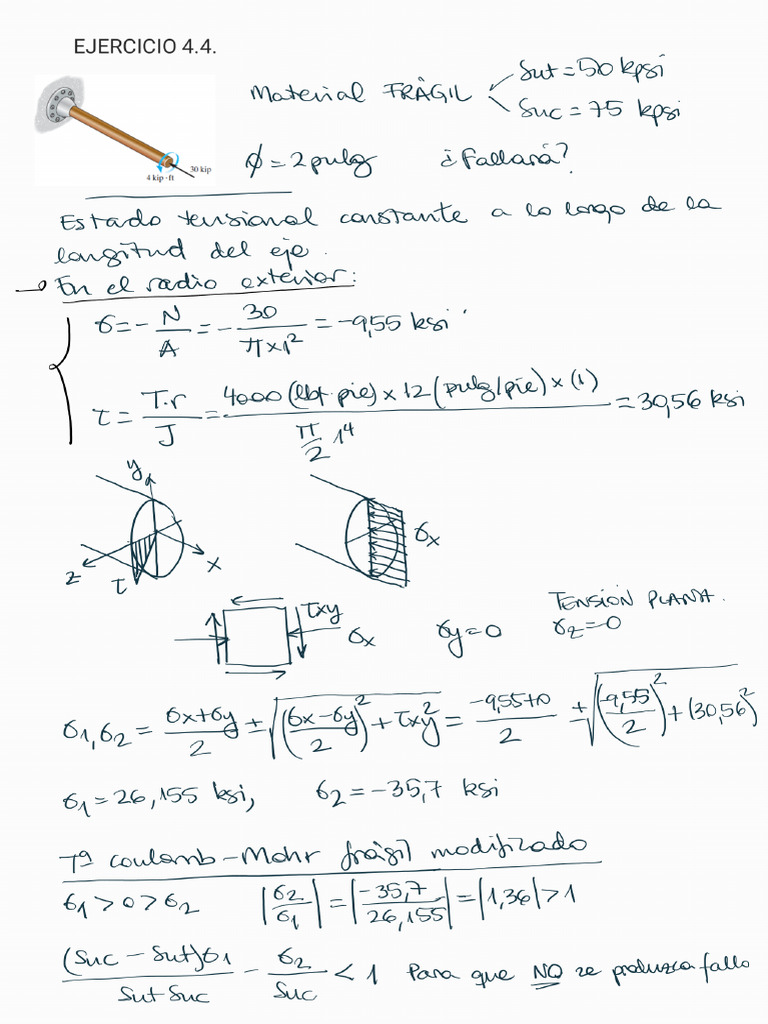 EJERCICIO 4.4.
Material FRÀGIL
Sut = 50 kpsi
Suc = 75 kpsi
30 kip
4 kip·ft
ϕ = 2 pulg ¿Fallará?
Estado tensional constante a lo largo de la
longitud del eje.
→ En el radio exterior:
σ = -N/A = -30/(π×1²) = -9,55 ksi
τ = T.r/J = 4000 (lbf.pie) × 12 (pulg/pie) × (1) / (π/2 1⁴) = 30,56 ksi
y
z τ x
σx
τxy
σx
σy = 0
TENSIÓN PLANA.
σz = 0
σ1, σ2 = (σx+σy)/2 ± √((σx-σy)/2)² + τxy² = (-9,55+0)/2 ± √(-9,55/2)² + (30,56)²
σ1 = 26,155 ksi, σ2 = -35,7 ksi
Tª Coulomb-Mohr frágil modifizado
σ1 > 0 > σ2 |σ2/σ1| = |-35,7/26,155| = |1,36| > 1
(Suc - Sut)σ1/(Sut Suc) - σ2/Suc < 1 Para que NO se produzca fallo